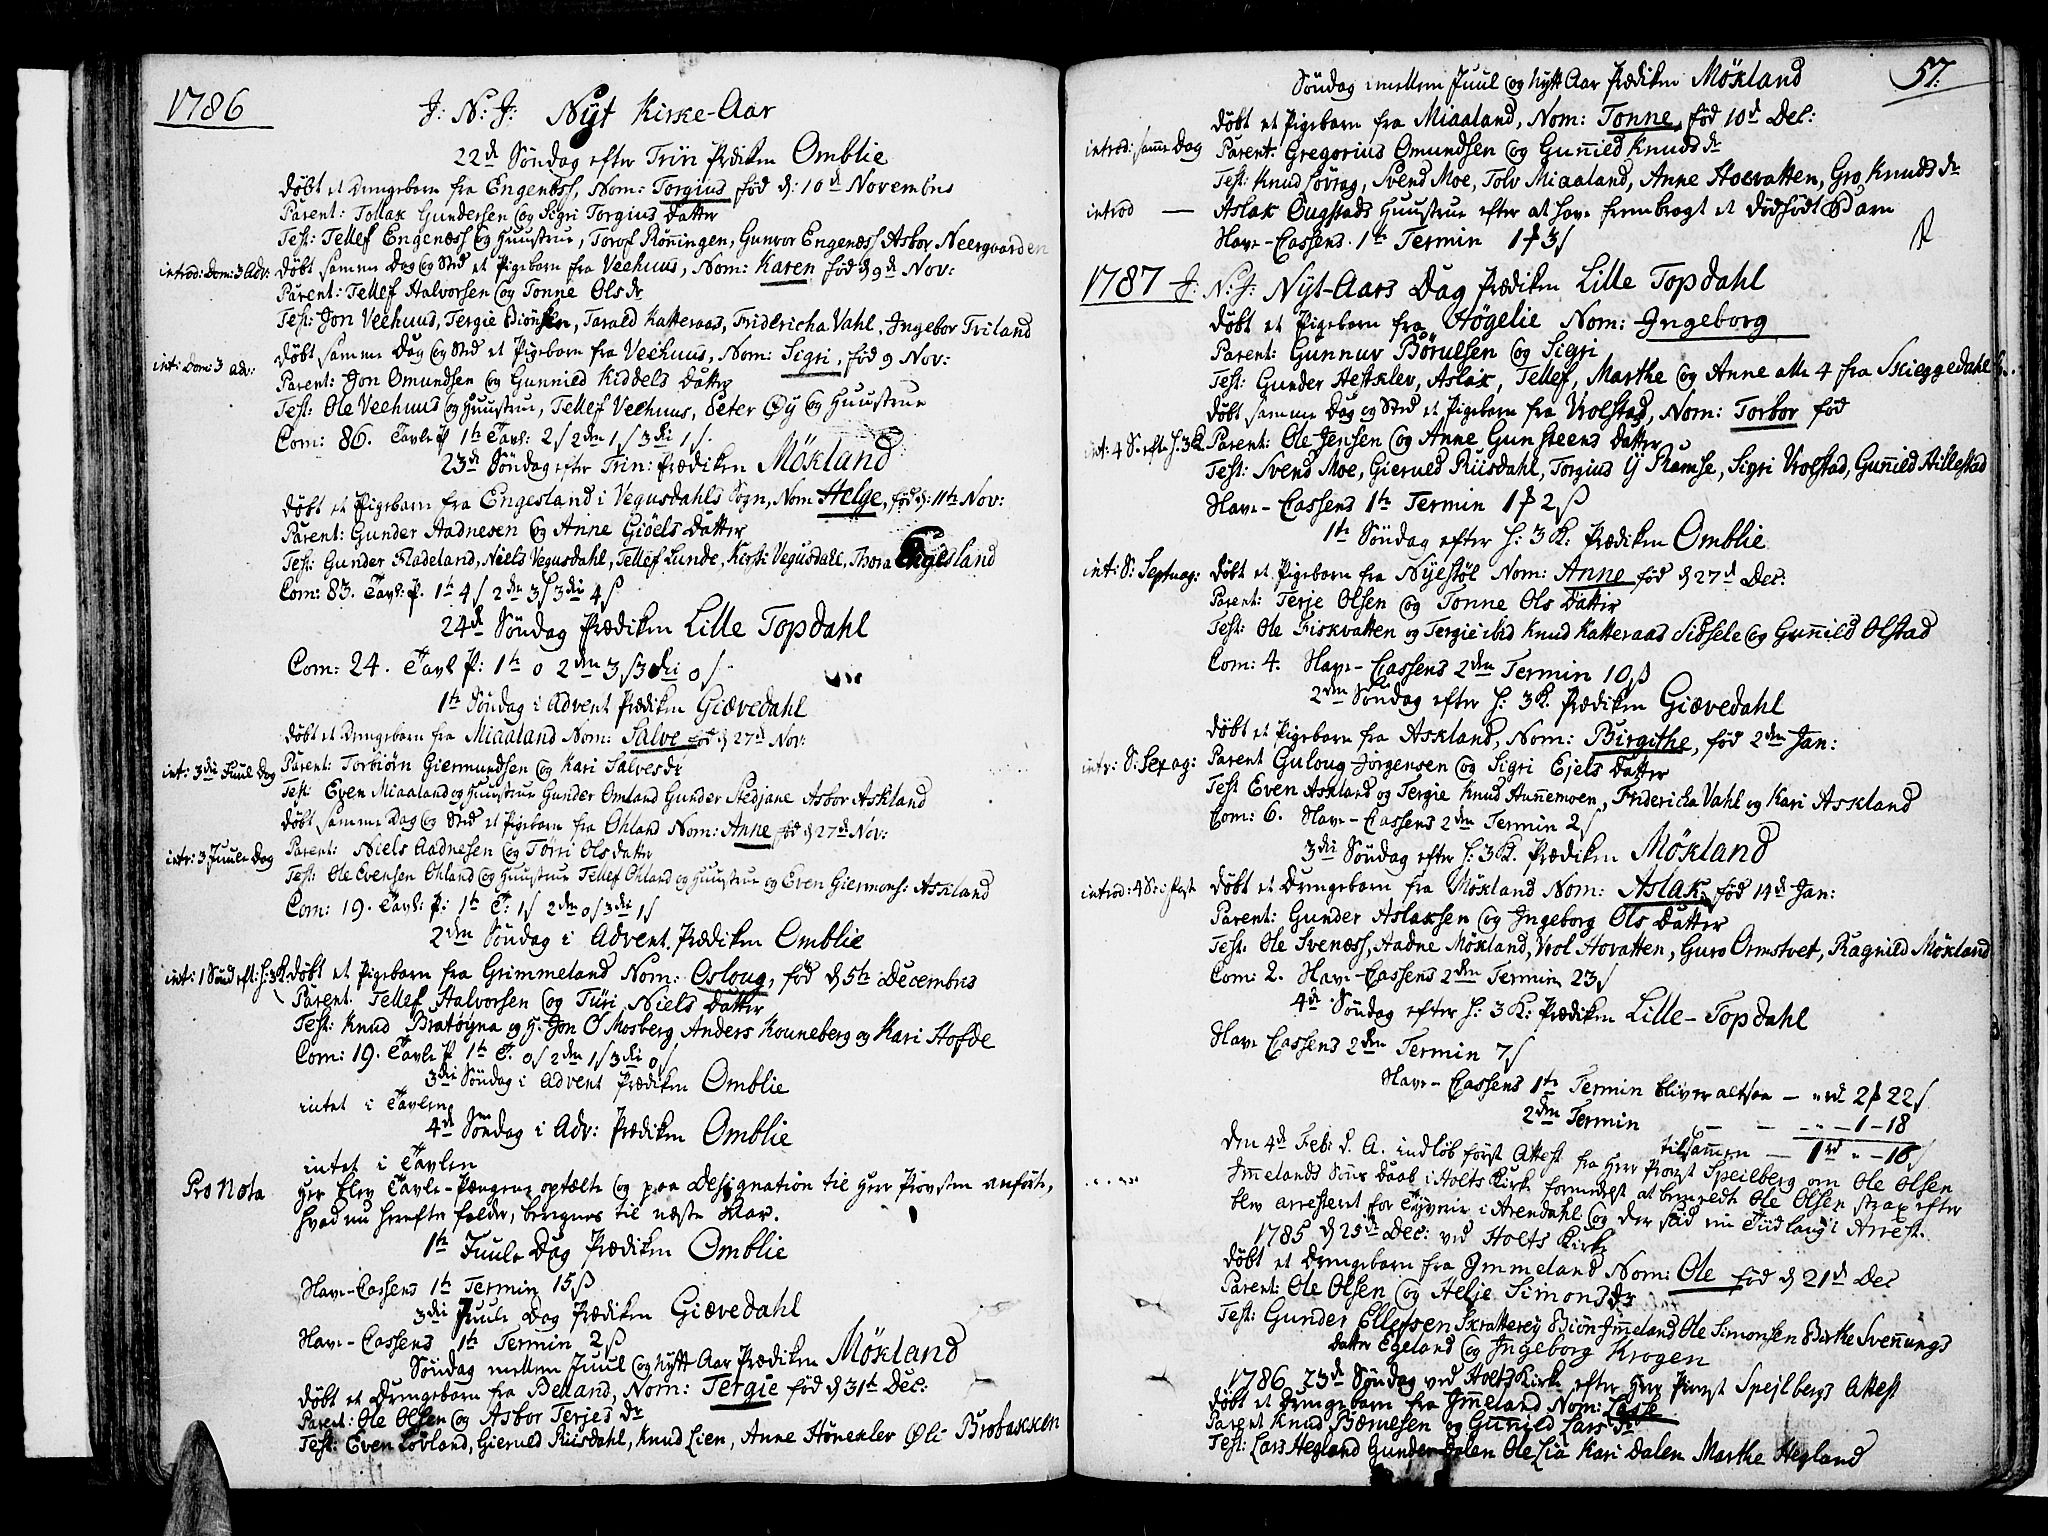 1786
J: N: J: Nyt Kirke-Aar
22d Söndag efter Trin Prædiken Omblie
döbt et Drengebarn fra Engenæss, Nom: Torgius föd d: 10d Novembris
Parent: Tollak Gundersen og Sigri Torgius Datter
Test: Tellef Engenæss og Huustrue, Torof Röningen, Gunvor Engenæss Asbor Neergaarden
introd: Dom: 3 Adv: döbt samme Dag og Sted et Pigebarn fra Veehuus, Nom: Karen föd d 9d Nov:
Parent: Tellef Halvorsen og Tonne Olsdr
Test: Jon Veehuus, Tergie Biönsen, Tarald Katteraas, Fridericha Vahl, Ingebor Triland
int: Dom: 3 adv: döbt samme Dag og Sted et Pigebarn fra Veehuus, Nom: Sigri, föd 9 Nov:
Parent: Jon Omundsen og Gunnild Kiddels Datter
Test: Ole Veehuus og Huustrue, Tellef Veehuus, Peter Öy og Huustrue
Com: 86. Tavle P 1te Tavl: 2 s 2den 1 s 3di 1 s.
23d Söndag efter Trin: Prædiken Mökland
döbt et Pigebarn fra Engesland i Vegusdahls Sogn, Nom Helge, föd d: 11te Nov:
Parent: Gunder Aadnesen og Anne Giöels Datter
Test: Gunder Fladeland, Niels Vegusdahl, Tellef Lunde, Kirsti Vegusdall, Thora Engesland
Com: 83. Tavl: P. 1te 4 s 2den 3 s 3di 4 s
24d Söndag Prædiken Lille Topdahl
Com: 24. Tavl P: 1te 0 2den 3 s 3di 0 s
1te Söndag i Advent Prædiken Giævedahl
döbt et Drengebarn fra Miaaland Nom: Salve föd d 27d Nov:
int: 3di Juul Dag Parent: Torbiörn Giermundsen og Kari Salvesdr
Test: Even Miaaland og Huustrue Gunder Omland Gunder Stedjane Asbor Askland
döbt samme Dag og Sted et Pigebarn fra Ohland Nom: Anne föd d 27d Nov:
intr: 3 Juule Dag Parent: Niels Aadnesen og Torri Olsdatter
Test: Ole Evensen Ohland og Huustrue Tellef Ohland og Huustrue og Even Giermons: Askland
Com: 19. Tavl: P: 1te T: 1 s 2den 0 s 3die 1 s
2den Söndag i Advent. Prædiken Omblie
int: 1 Sönd eft: H: 3 K: döbt et Pigebarn fra Grimmeland Nom: Osloug, föd d 5te Decembris
Parent. Tellef Halvorsen og Turi Niels Datter
Test: Knud Bratöyna og H: Jon O Mosberg Anders Kouneberg og Kari Hofde
Com: 19. Tavle P 1te T. 0 s 2den 1 s 3di 0 s
3di Söndag i Advent Prædiken Omblie
intet i Tavlen
4d Söndag i Adv: Prædiken Omblie
intet i Tavlen
Pro Nota Her blev Tavle-Pengene optælte og paa Designation til Herr Provsten anförte,
hvad nu herefter falder, beregnes til næste Klar.
1te Juule Dag Prædiken Omblie
Have-Cassens 1te Termin 15 s
3di Juule Dag Prædiken Giævedahl
Have-Cassens 1te Termin 2 s
Söndag mellem Juul og Nytt Aar Prædiken Mökland
döbt et Drengebarn fra Belland, Nom: Tergie föd d 31te Dec:
Parent: Ole Olsen og Asbor Terjes dr
Test: Even Lövland, Gieruld Riisdahl, Knud Lien, Anne Hönekler Öli Brobakken
57.
Söndag imellem Juul og Nytt Aar Prædiken Mökland
döbt et Pigebarn fra Miaaland, Nom: Tonne, föd 10d Dec:
introd: samme Dag Parent. Gregorius Omundsen og Gunnild Knudsdr
Test: Knud Lövrag, Svend Moe, Tolv Miaaland, Anne Hocvatten, Gro Knudsdr
introd — Aslak Ougstads Huustrue efter at have frembragt et dödfödt Barn
Have-Cassens. 1te Termin 1 f 3 s
1787 J: N: J: Nyt-Aars Dag Prædiken Lille Topdahl
döbt et Pigebarn fra Högelie Nom: Ingeborg
Parent: Gunnuv Börulsen og Sigri
Test: Gunder Hestklev, Aslak, Tellef, Marthe og Anne alle 4 fra Skieggedahl
döbt samme Dag og Sted et Pigebarn fra Vrolstad, Nom: Torbor föd
int: 4 S. efte H. 3 K Parent: Ole Jensen og Anne Gunsteens Datter
Test: Svend Moe, Gieruld Riisdahl, Torgius Ramse, Sigri Vrolstad, Gunnild Hillestad
Have-Cassens 1te Termin 1 f 2 s
1te Söndag efter H: 3 K. Prædiken Omblie
int: S: Septuag: döbt et Pigebarn fra Nyestöl Nom: Anne föd d 27d Dec:
Parent: Terje Olsen og Tonne Ols Datter
Test: Ole Fiskvatten og Tergie ibid Knud Katteraas Sidsele og Gunnild Olstad
Com: 4. Have-Cassens 2den Termin 10 s
2den Söndag efter H: 3 K. Prædiken Giævedahl
döbt et Pigebarn fra Askland, Nom: Birgithe, föd 2den Jan:
intr: S: Sexag: Parent Guloug Jörgensen og Sigri Ejels Datter
Test Even Askland og Tergie Knud Aunnemoen, Fridericha Vahl og Kari Askland
Com: 6. Have-Cassens 2den Termin 2 s
3di Söndag efter H: 3 K. Prædiken Mökland
introd: 4 S: i Fast döbt et Drengebarn fra Mökland Nom: Aslak föd 14d Jan:
Parent: Gunder Aslaksen og Ingeborg Ols Datter
Test. Ole Svenæss, Aadne Mökland, Vrol Hovatten, Guro Ormstvet, Ragnild Mökland
Com: 2. Have-Cassens 2den Termin 23 s
4d Söndag efter H: 3 K: Prædiken Lille-Topdahl
Have Cassens 2den Termin 7 s
Have-Cassens 1te Termin bliver altsaa — rd 2 f 22 s
2den Termin — 1 - 18
tilsammen — 1 rd " - 16 s
den 4d Feb: d. A. indlöb först Attest fra Herr Provst Speilberg om Ole Olsen
Immelands Söns Daab i Holts Kirk formedelst at bemeldte Ole Olsen strax efter
blev arresteret for Tyverie i Arendahl og der sad en Tiid lang i Arrest.
1785 d 25d Dec: ved Holts Kirk
döbt et Drengebarn fra Immeland Nom: Ole föd d 21d Dec
Parent: Ole Olsen og Helje Simonsdr
Test: Gunder Ellefsen Skratterey Biön Immeland Ole Simonsen Birthe Svenungs
datter Egeland og Ingeborg Krogen
1786 23d Söndag ved Holts Kirk efter Herr Provst Spejlbergs Attest
döbt et Drengebarn fra Immeland Nom: Lasse
Parent Knud Bærulsen og Gunild Larsdr
Test: Lars Hegland Gunder Dalen Ole Lia Kari Dalen Marthe Hegland